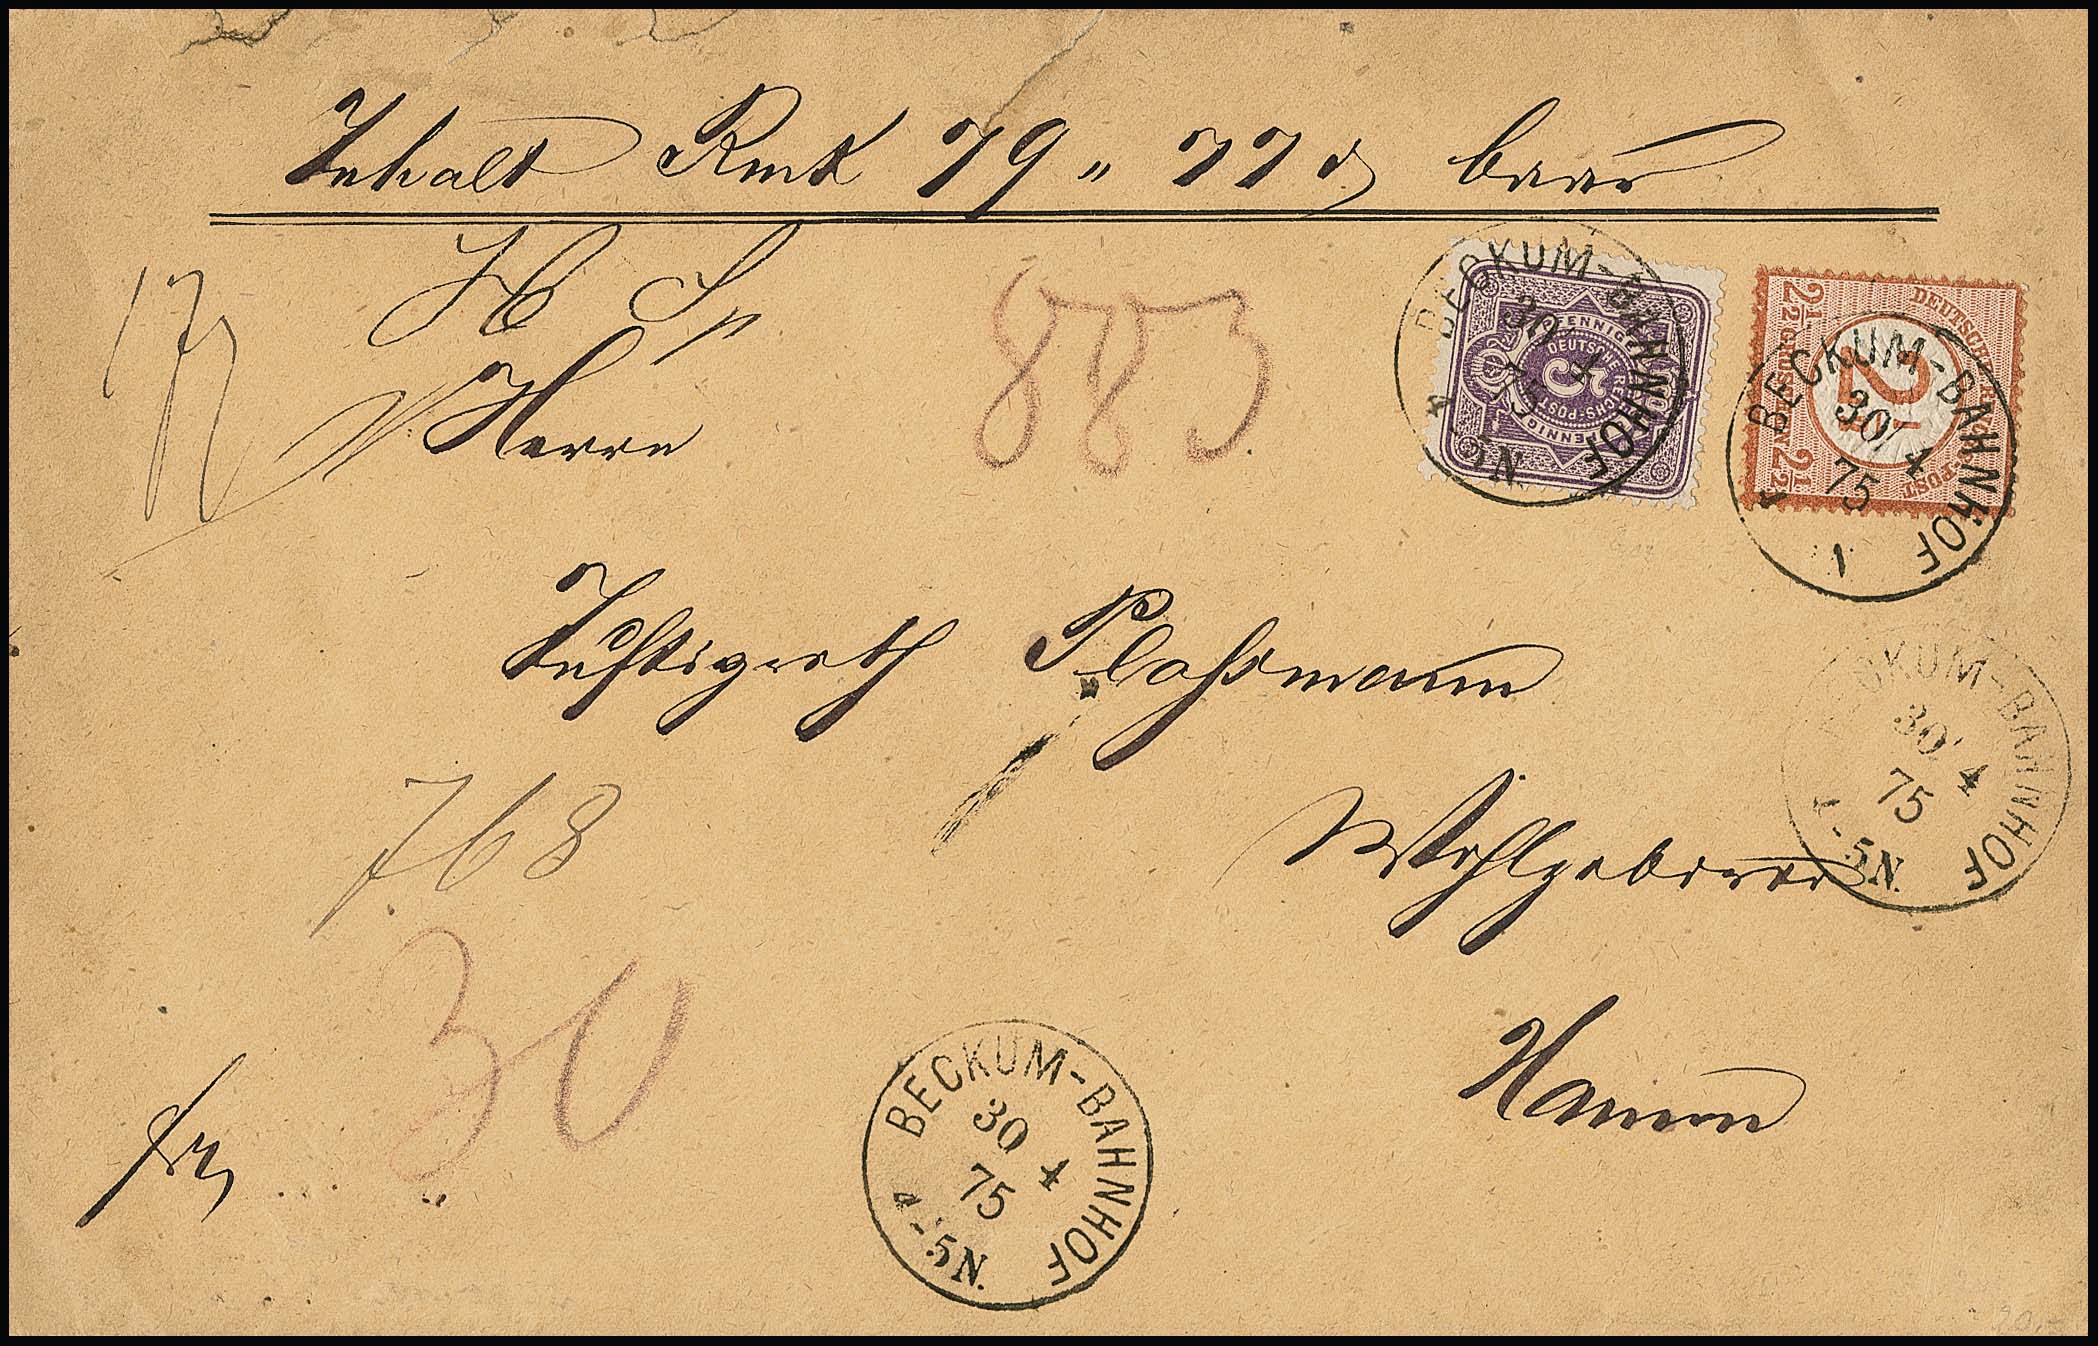 Inhalt Rmk 79 „ 77 ₰ baar
H Sp
177
Herrn
883
BECKUM-BAHNHOF 30 4 75 N
5 PFENNIGE DEUTSCHE REICHS-POST 5 PFENNIGE
BECKUM-BAHNHOF 30 4 75 N
2½ DEUTSCHE REICHS-POST 2½ GROSCHEN 2½
Justizrath Plassmann
BECKUM-BAHNHOF 30 4 75 4-5N.
768
Wohlgeboren
30
Hamm
frei
BECKUM-BAHNHOF 30 4 75 4-5N.